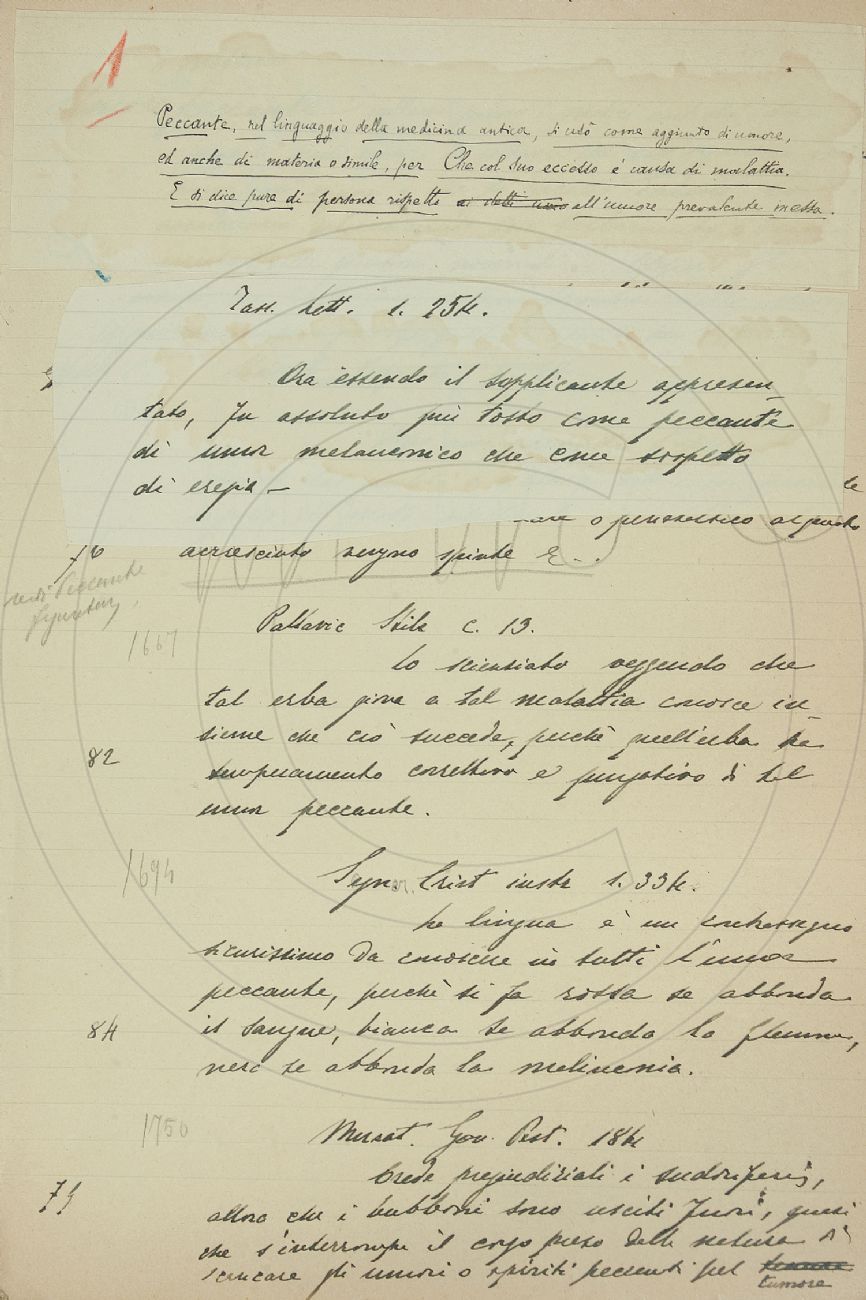 1
Peccante, nel linguaggio della medicina antica, si usò come aggiunto di umore,
ed anche di materia o simile, per Che col suo eccesso è causa di malattia.
E si dice pure di persona rispetto ai detti umo all'umore prevalente in essa.
Tass. Lett. 1. 254.
Ora essendo il supplicante appresen-
tato, fu assoluto più tosto come peccante
di umor melanconico che come sospetto
di eresia –
o peristaltico alquanto
76 accresciuto vengno spinte E..
vedi Peccante
Pallavic Stile c. 13.
1667
Lo scienziato veggendo che
tal erba giova a tal malattia conosce in-
sieme che ciò succede, perchè quell'erba ha
82
temperamento correttivo e purgativo di tal
umor peccante.
1694
Segner. Crist instr 1. 334.
La lingua è un contrassegno
sicurissimo da conoscere in tutti l'umor
peccante, perchè si fa rossa se abbonda
84 il sangue, bianca se abbonda la flemma,
nera se abbonda la melinconia.
1750
Murat. Gov. Pest. 184
Crede pregiudiziali i sudoriferi,
79
allora che i bubboni sono usciti fuori, quasi
che s'interrompa il corso preso dalla natura di
scaricare gli umori o spiriti peccanti pel tumore
tumore